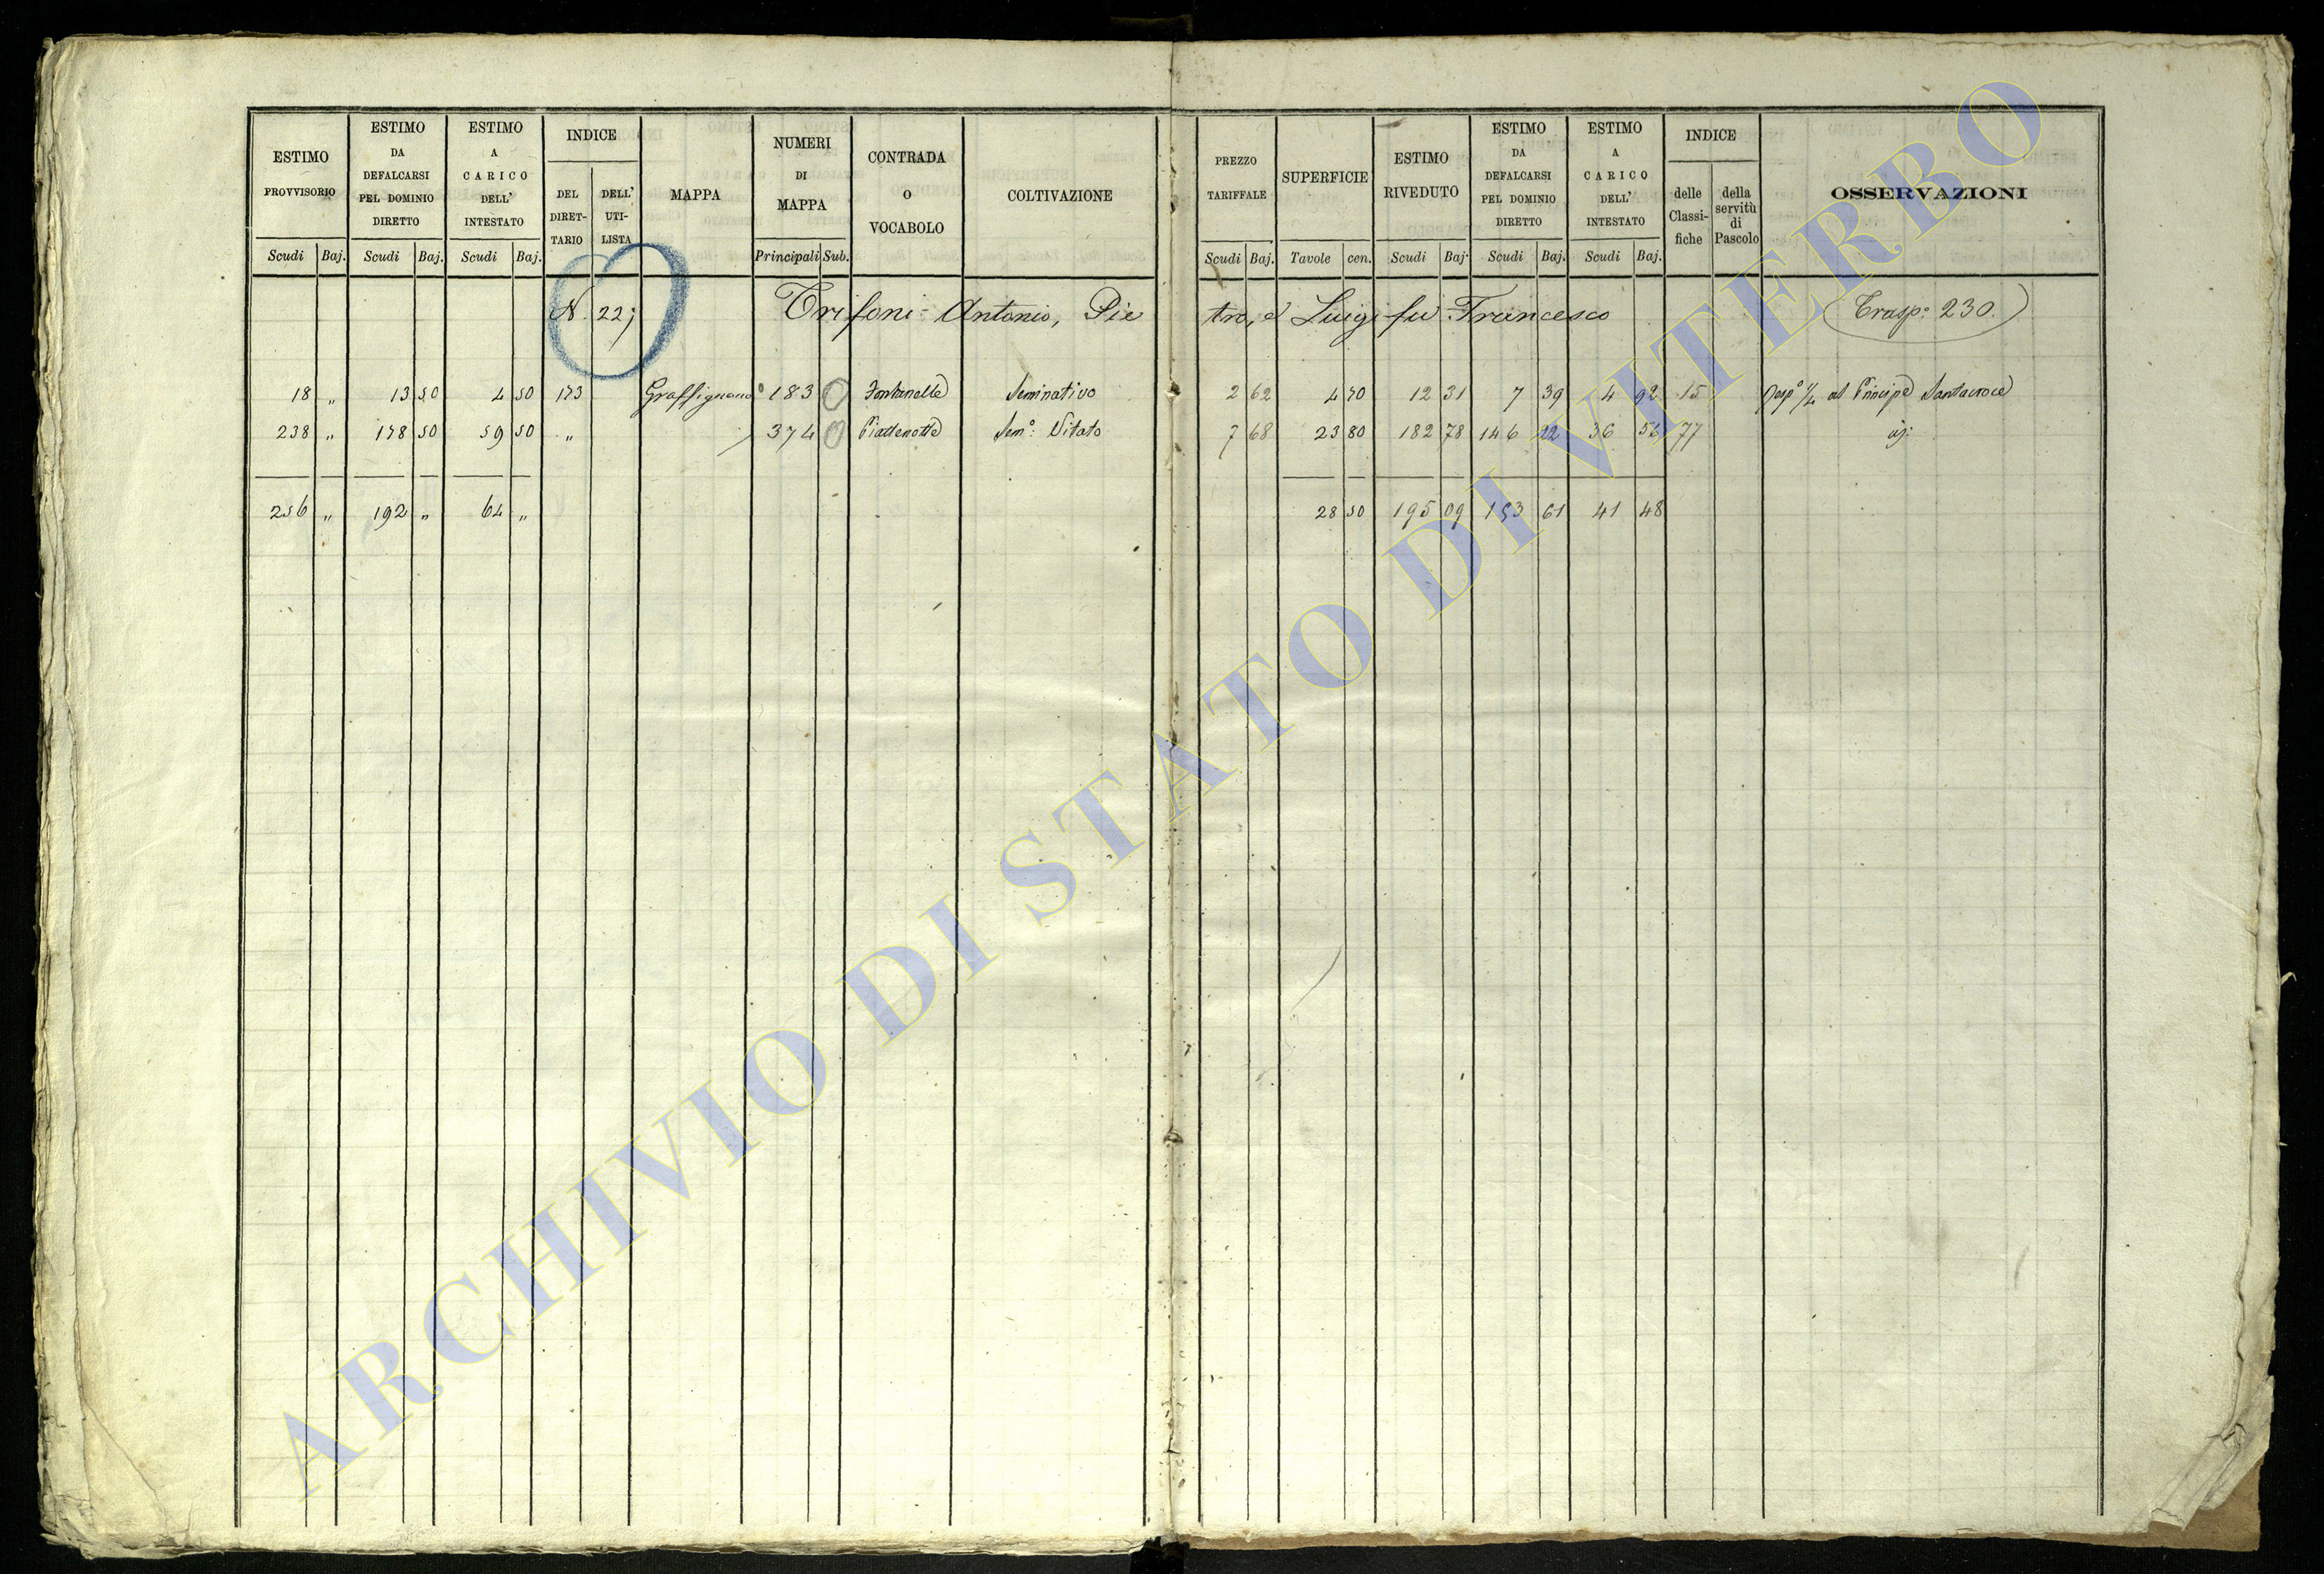 ESTIMO PROVVISORIO Scudi Baj.
ESTIMO DA DEFALCARSI PEL DOMINIO DIRETTO Scudi Baj.
ESTIMO A CARICO DELL' INTESTATO Scudi Baj.
INDICE DEL DIRET-TARIO DELL' UTI-LISTA
MAPPA
NUMERI DI MAPPA Principali Sub.
CONTRADA O VOCABOLO
COLTIVAZIONE
PREZZO TARIFFALE Scudi Baj.
SUPERFICIE Tavole cen.
ESTIMO RIVEDUTO Scudi Baj.
ESTIMO DA DEFALCARSI PEL DOMINIO DIRETTO Scudi Baj.
ESTIMO A CARICO DELL' INTESTATO Scudi Baj.
INDICE delle Classi-fiche della servitù di Pascolo
OSSERVAZIONI
N. 227 Trifoni Antonio, Pietro, e Luigi fu Francesco (Trasp: 230.)
18 " 13 50 4 50 173 Graffignano 183 0 Fontanelle Seminativo 2 62 4 70 12 31 7 39 4 92 15 Risp° 1/4 al Principe Santacroce
238 " 178 50 59 50 " 374 0 Sem°: Vitato 7 68 23 80 182 78 146 22 36 56 77 id:
256 " 192 " 64 " 28 50 195 09 153 61 41 48
ARCHIVIO DI STATO DI VITERBO